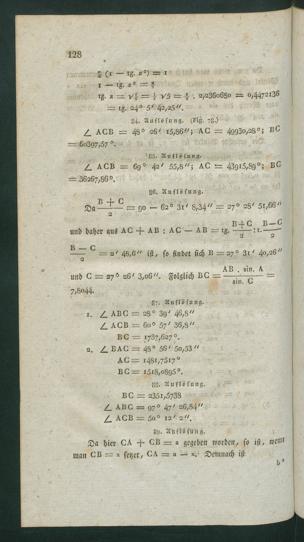 128
(1 — tg. x²) = 1
1 — tg. x² =
tg. x = √ = √5 = . 2,2360680 = 0,4472136
= tg. 24° 5' 42,25".
84. Auflösung. (Fig. 78.)
∠ ACB = 48° 26' 15,86"; AC = 49930,28°; BC
= 60397,57°.
85. Auflösung.
∠ ACB = 69° 42' 55,8"; AC = 43915,89°; BC
= 36267,86°.
86. Auflösung.
Da (B + C)/2 = 90 — 62° 31' 8,34" = 27° 28' 51,66"
und daher aus AC + AB : AC — AB = tg. (B+C)/2 : t. (B—C)/2
(B — C)/2 = 2' 48,6" ist, so findet sich B = 27° 31' 40,26"
und C = 27° 26' 3,06". Folglich BC = (AB . sin. A)/(sin. C) =
7,8044.
87. Auflösung.
1. ∠ ABC = 28° 39' 46,8"
∠ ACB = 60° 57' 36,8"
BC = 1737,627°.
2. ∠ BAC = 48° 56' 50,53"
AC = 1481,7517°
BC = 1518,0895°.
88. Auflösung.
BC = 2351,5738
∠ ABC = 97° 47' 26,84"
∠ ACB = 50° 12' 2".
89. Auflösung.
Da hier CA + CB = a gegeben worden, so ist, wenn
man CB = x setzet, CA = a — x. Demnach ist